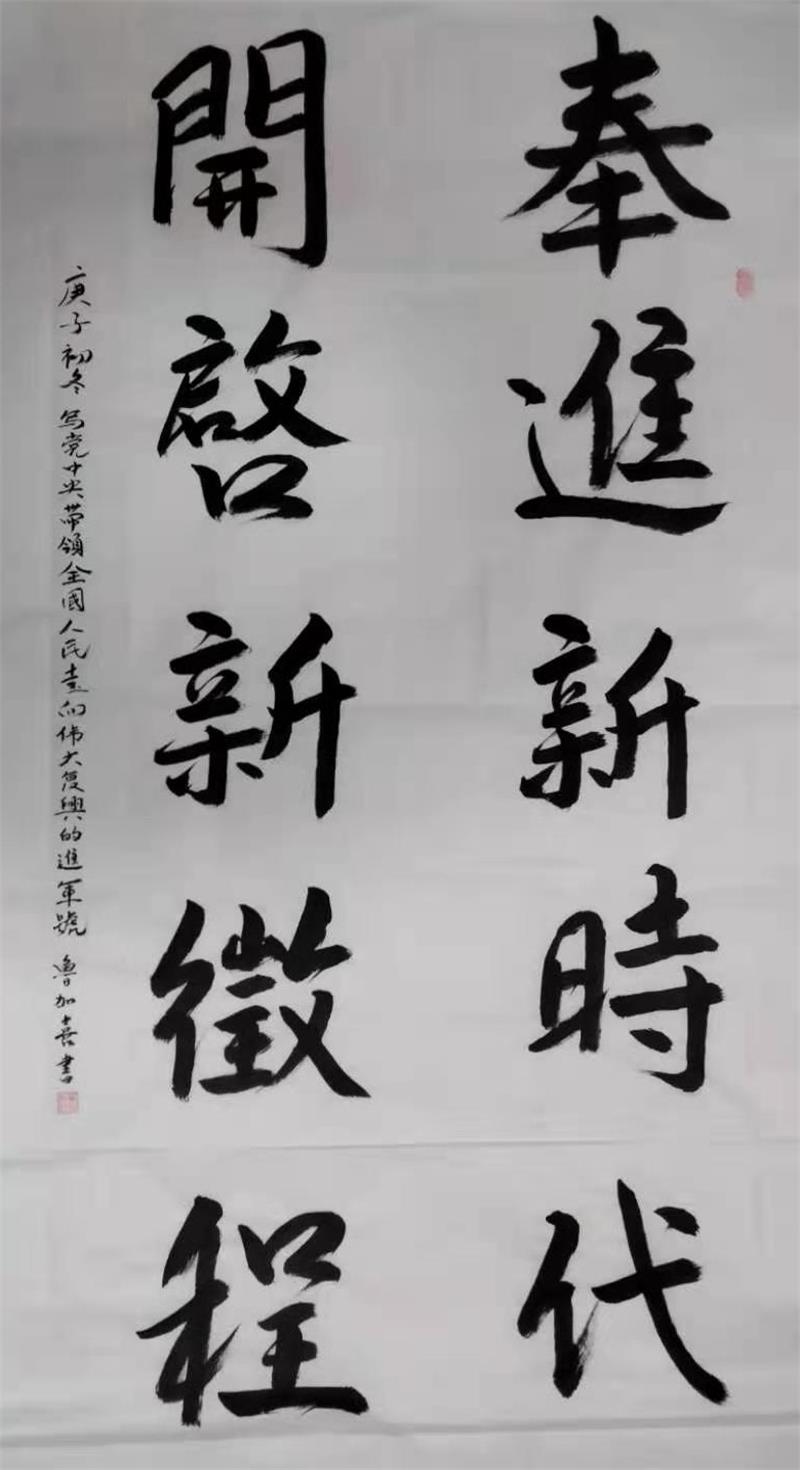 奉進新時代
開啓新徵程
庚子初冬写党中央带領全國人民走向伟大复興的進軍號 魯加喜書